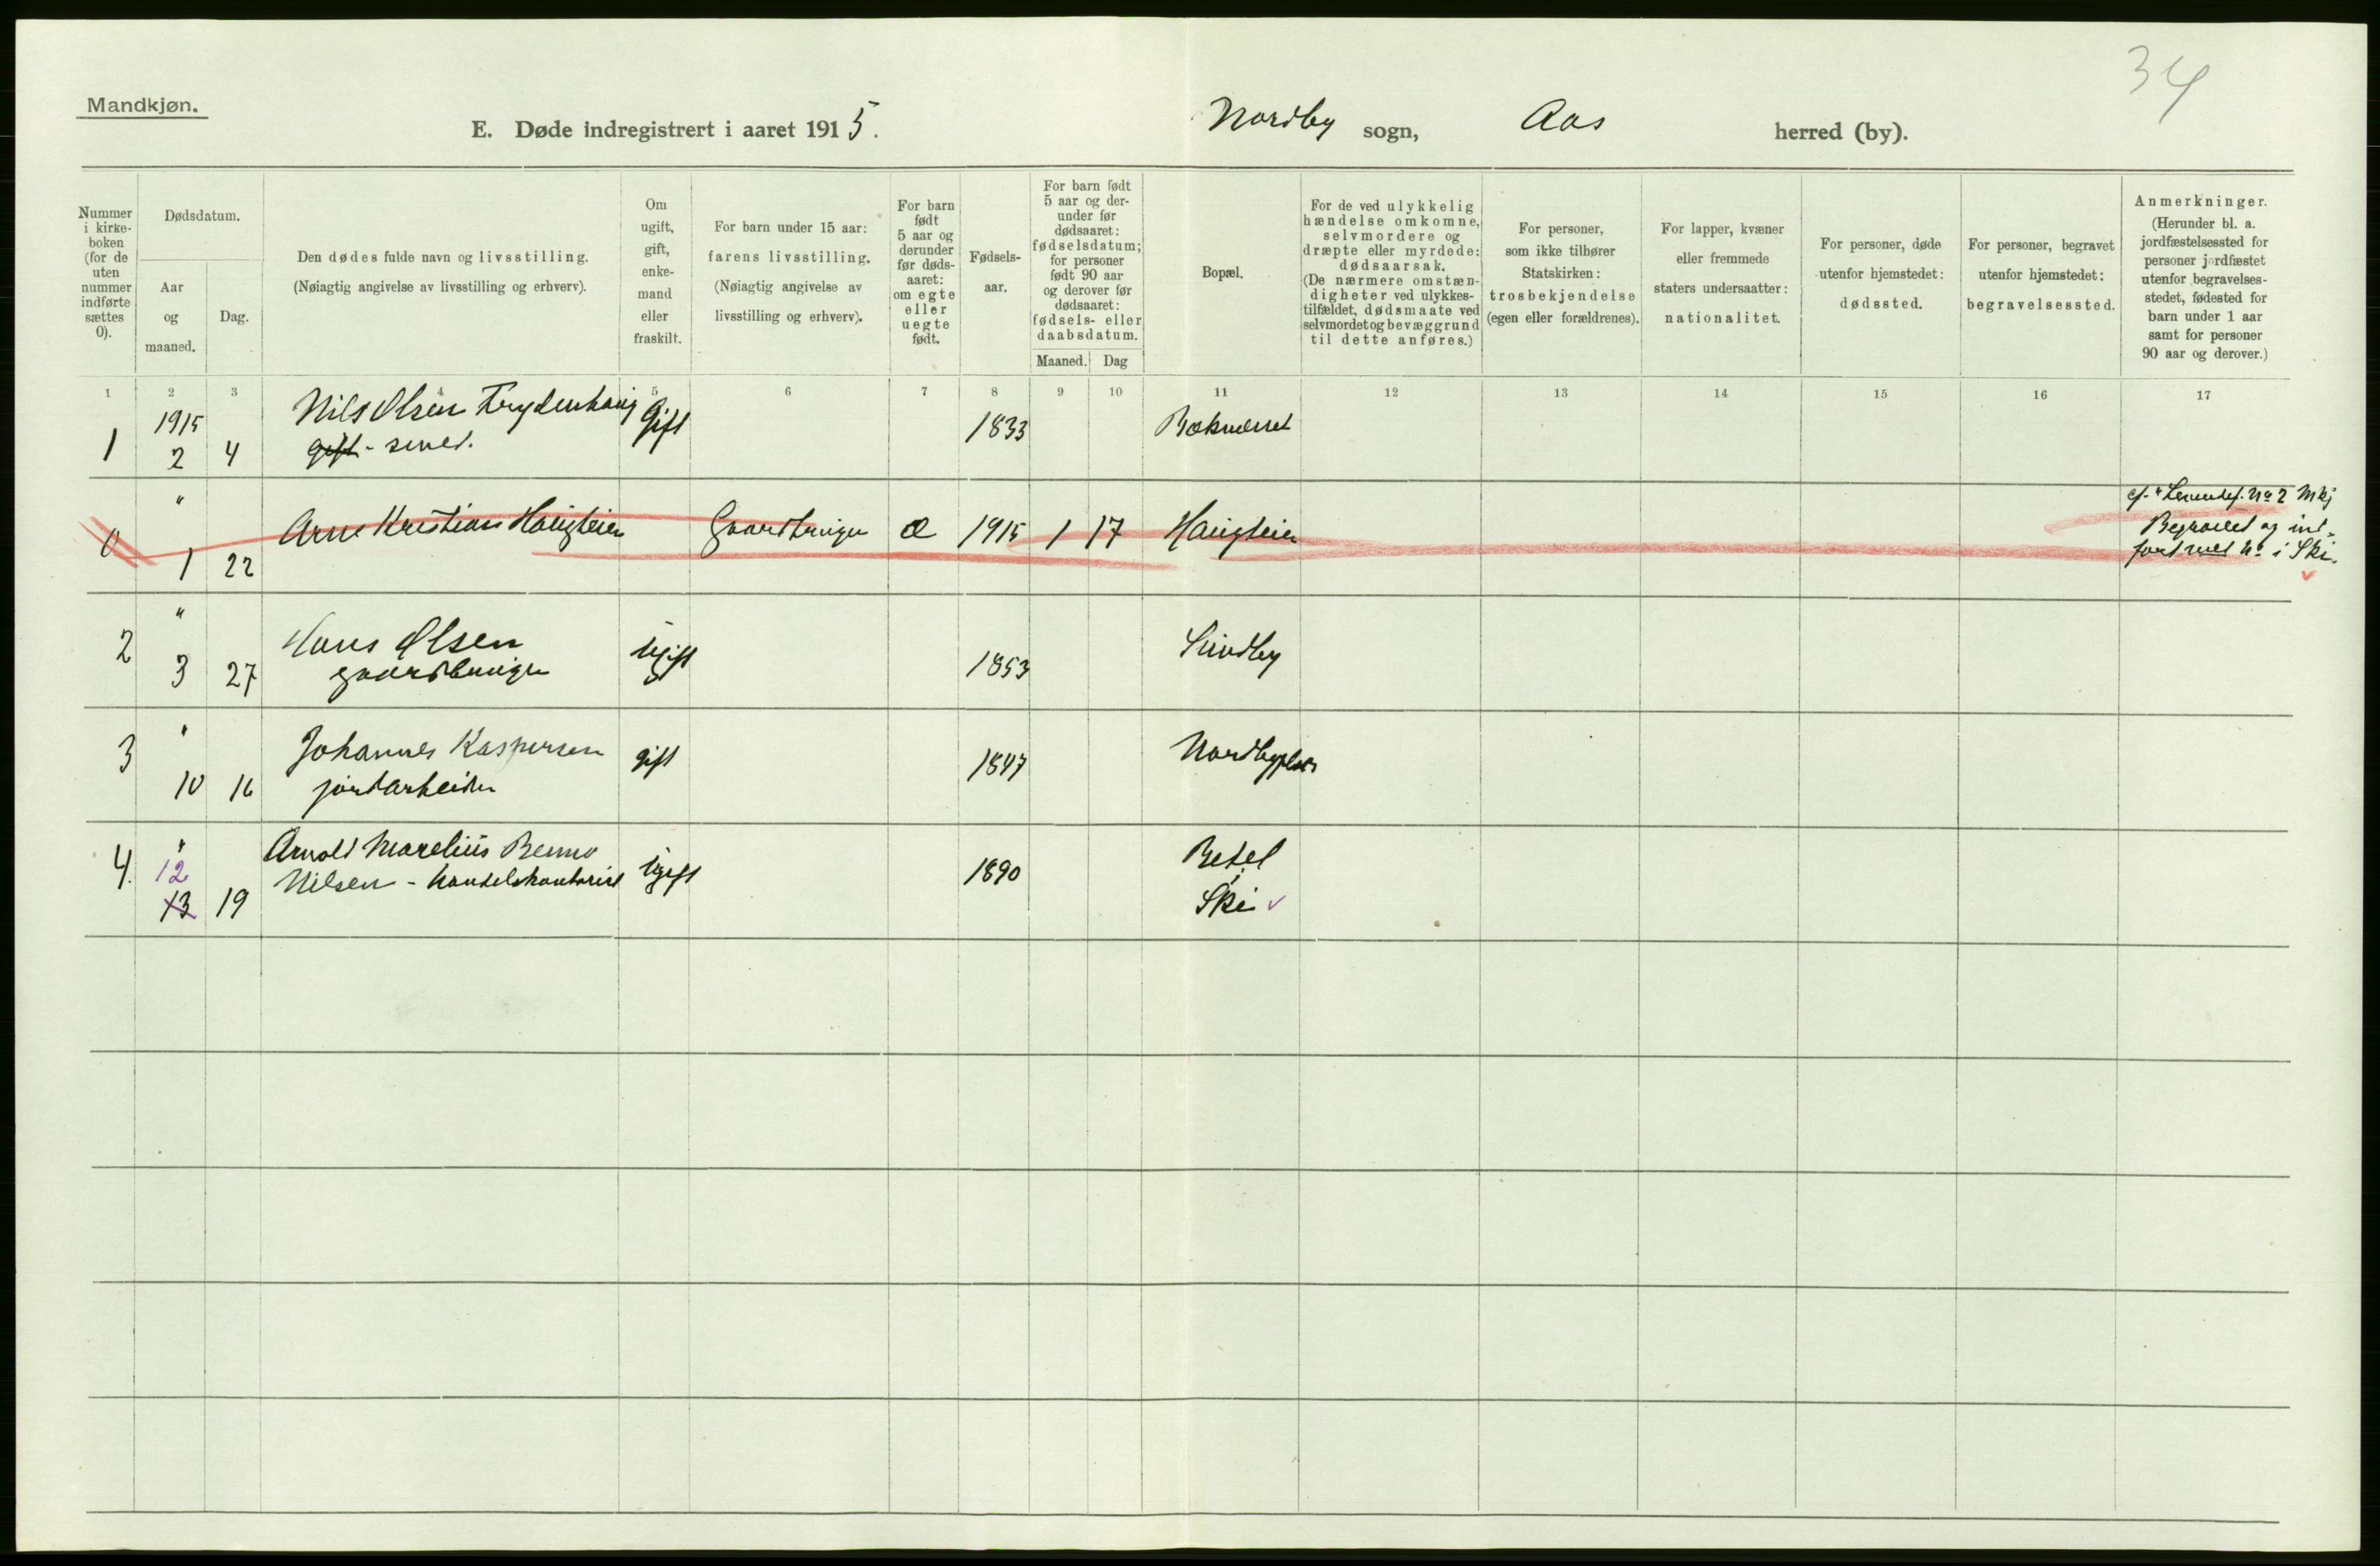 34
Mandkjøn.
E. Døde indregistrert i aaret 1915.
Nordby sogn, Aas herred (by).
Nummer i kirkeboken (for de uten nummer indførte sættes 0).
Dødsdatum.
Aar og maaned.
Dag.
Den dødes fulde navn og livsstilling.
(Nøiagtig angivelse av livsstilling og erhverv).
Om ugift, gift, enkemand eller fraskilt.
For barn under 15 aar: farens livsstilling.
(Nøiagtig angivelse av livsstilling og erhverv).
For barn født 5 aar og derunder før dødsaaret: om egte eller uegte født.
Fødselsaar.
For barn født 5 aar og derunder før dødsaaret: fødselsdatum; for personer født 90 aar og derover før dødsaaret: fødsels- eller daabsdatum.
Maaned. Dag
Bopæl.
For de ved ulykkelig hændelse omkomne, selvmordere og dræpte eller myrdede: dødsaarsak.
(De nærmere omstændigheter ved ulykkestilfældet, dødsmaate ved selvmordet og bevæggrund til dette anføres.)
For personer, som ikke tilhører Statskirken: trosbekjendelse (egen eller forældrenes).
For lapper, kvæner eller fremmede staters undersaatter: nationalitet.
For personer, døde utenfor hjemstedet: dødssted.
For personer, begravet utenfor hjemstedet: begravelsessted.
Anmerkninger.
(Herunder bl. a. jordfæstelsessted for personer jordfæstet utenfor begravelsesstedet, fødested for barn under 1 aar samt for personer 90 aar og derover.)
1 2 3 4 5 6 7 8 9 10 11 12 13 14 15 16 17
1 1915 2 4 Nils Olsen Frydenhaug Gift 1833
gift - smed.
0 " 1 22 Arne Kristian Haugteien Gaardbruger æ 1915 1 17 Haugteien
No 2 Mkj
Begravet og indført med No i Ski.
2 " 3 27 Hans Olsen ugift 1853
gaardbruger
3 " 10 16 Johannes Kaspersen gift 1847 Nordbyplads
jordarbeider
4. " 12 13 19 Arnold Marelius Benno ugift 1890 Betel
Nilsen - handelskontorist Ski